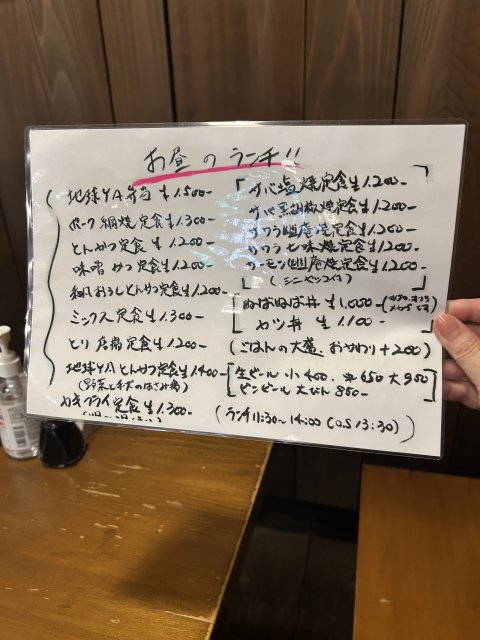 お昼のランチ!!
地球YA弁当 ¥1.500-
ポーク網焼定食 ¥1.300-
とんかつ定食 ¥1.200-
味噌かつ定食 ¥1.200-
和風おろしとんかつ定食 ¥1.200-
ミックス定食 ¥1.300-
とり唐揚定食 ¥1.200-
地球YAとんかつ定食 ¥1.400-
(野菜と チーズのはさみ揚)
カキフライ定食 ¥1.300-
サバ塩焼定食 ¥1.200-
サバ黒胡椒焼定食 ¥1.200-
サワラ幽庵焼定食 ¥1.200-
サワラ七味焼定食 ¥1.200-
サーモン幽庵焼定食 ¥1.200-
ねばねば丼 ¥1.000-
カツ丼 ¥1.100-
(ごはんの大盛、おかわり +200)
生ビール 小400. 中650 大950
ビンビール 大びん 850-
(ランチ11:30~14:00 (O.S 13:30))